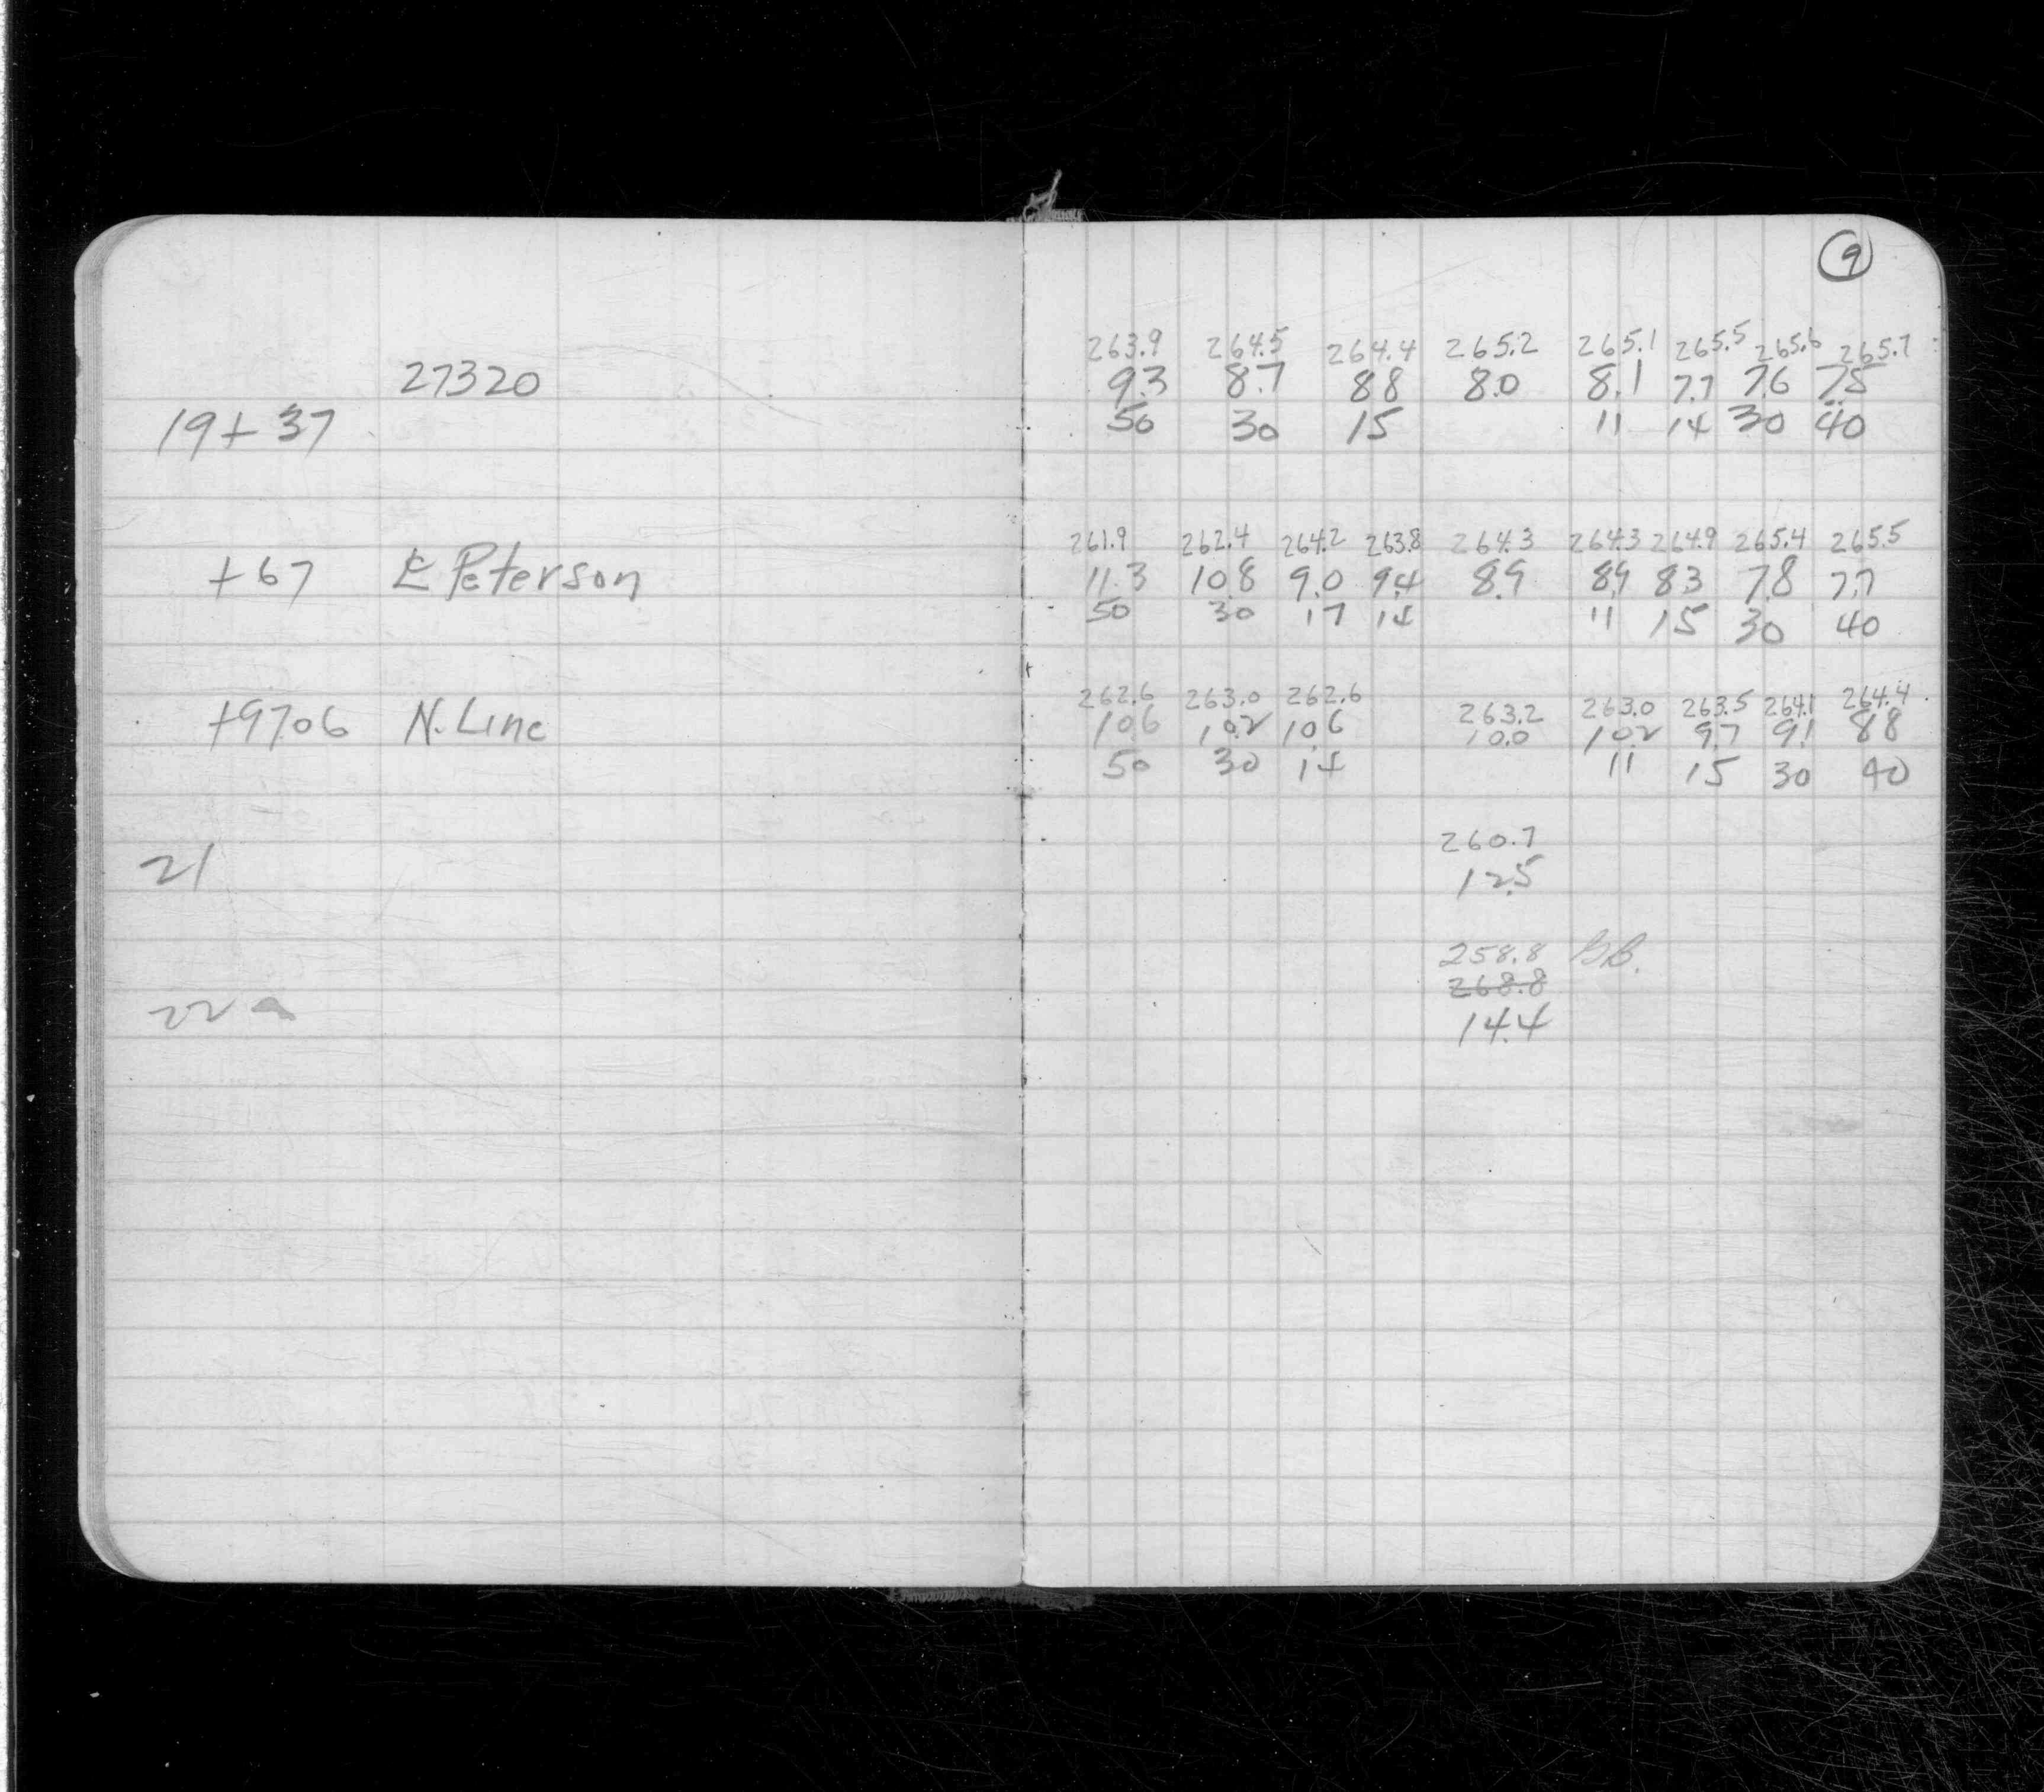 9
263.9 264.5 264.4 265.2 265.1 265.5 265.6 265.7
27320 9.3 8.7 8.8 8.0 8.1 7.7 7.6 7.5
19+37 50 30 15 11 14 30 40
261.9 262.4 264.2 263.8 264.3 264.3 264.9 265.4 265.5
+67 ℄ Peterson 11.3 10.8 9.0 9.4 8.9 8.9 8.3 7.8 7.7
50 30 17 14 11 15 30 40
262.6 263.0 262.6 263.2 263.0 263.5 264.1 264.4
+97.06 N. Line 10.6 10.2 10.6 10.0 10.2 9.7 9.1 8.8
50 30 14 11 15 30 40
260.7
21 12.5
258.8 BB.
268.8
22
14.4